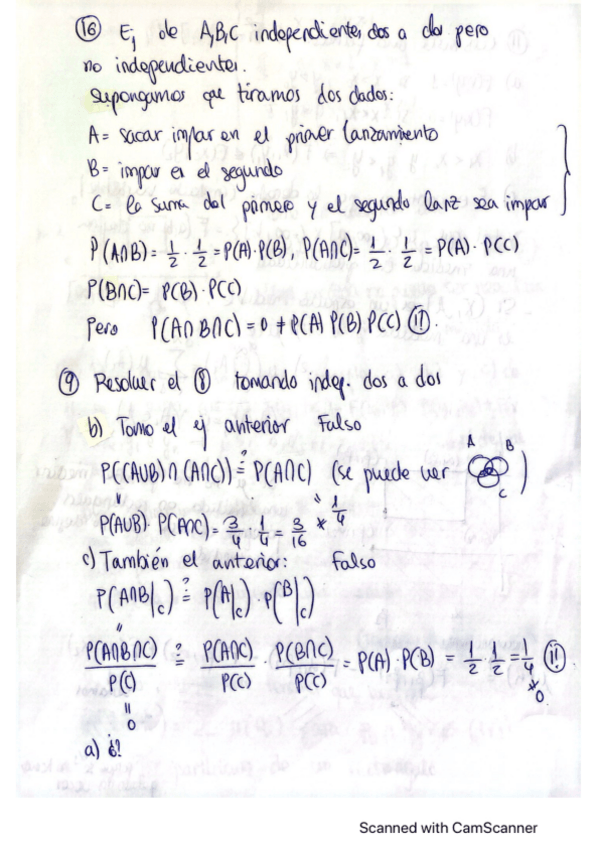 ⑯ Ej de A,B,C independientes dos a dos pero
no independientes.
Supongamos que tiramos dos dados:
A = sacar impar en el primer lanzamiento
B = impar en el segundo
C = la suma del primero y el segundo lanz sea impar
P(A∩B) = 1/2 · 1/2 = P(A)·P(B), P(A∩C) = 1/2 · 1/2 = P(A)·P(C)
P(B∩C) = P(B)·P(C)
Pero P(A∩B∩C) = 0 ≠ P(A) P(B) P(C) !!.
⑨ Resolver el ⑧ tomando indep. dos a dos
b) Tomo el ej anterior Falso
P((A∪B)∩(A∩C)) ≟ P(A∩C) (se puede ver A B C )
" " 1/4
P(A∪B)·P(A∩C) = 3/4 · 1/4 = 3/16 ≠
c) También el anterior: Falso
P(A∩B|C) ≟ P(A|C)·P(B|C)
"
P(A∩B∩C)/P(C) ≟ P(A∩C)/P(C) · P(B∩C)/P(C) = P(A)·P(B) = 1/2 · 1/2 = 1/4 !!
" ≠
0 0
a) ¿?
Scanned with CamScanner